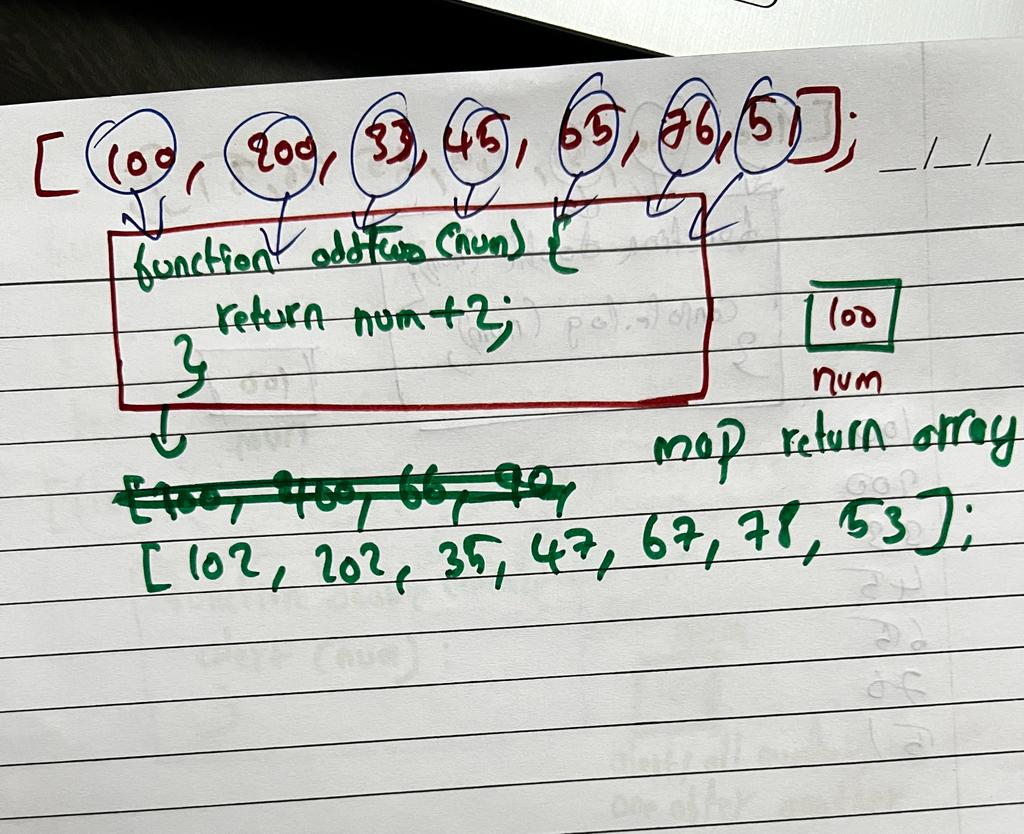 [ 100, 200, 33, 45, 65, 76, 51 ]; _/_/_
function addtwo (num) {
return num + 2;
}
100
num
map return array
[100, 400, 66, 90,
[ 102, 202, 35, 47, 67, 78, 53 ];